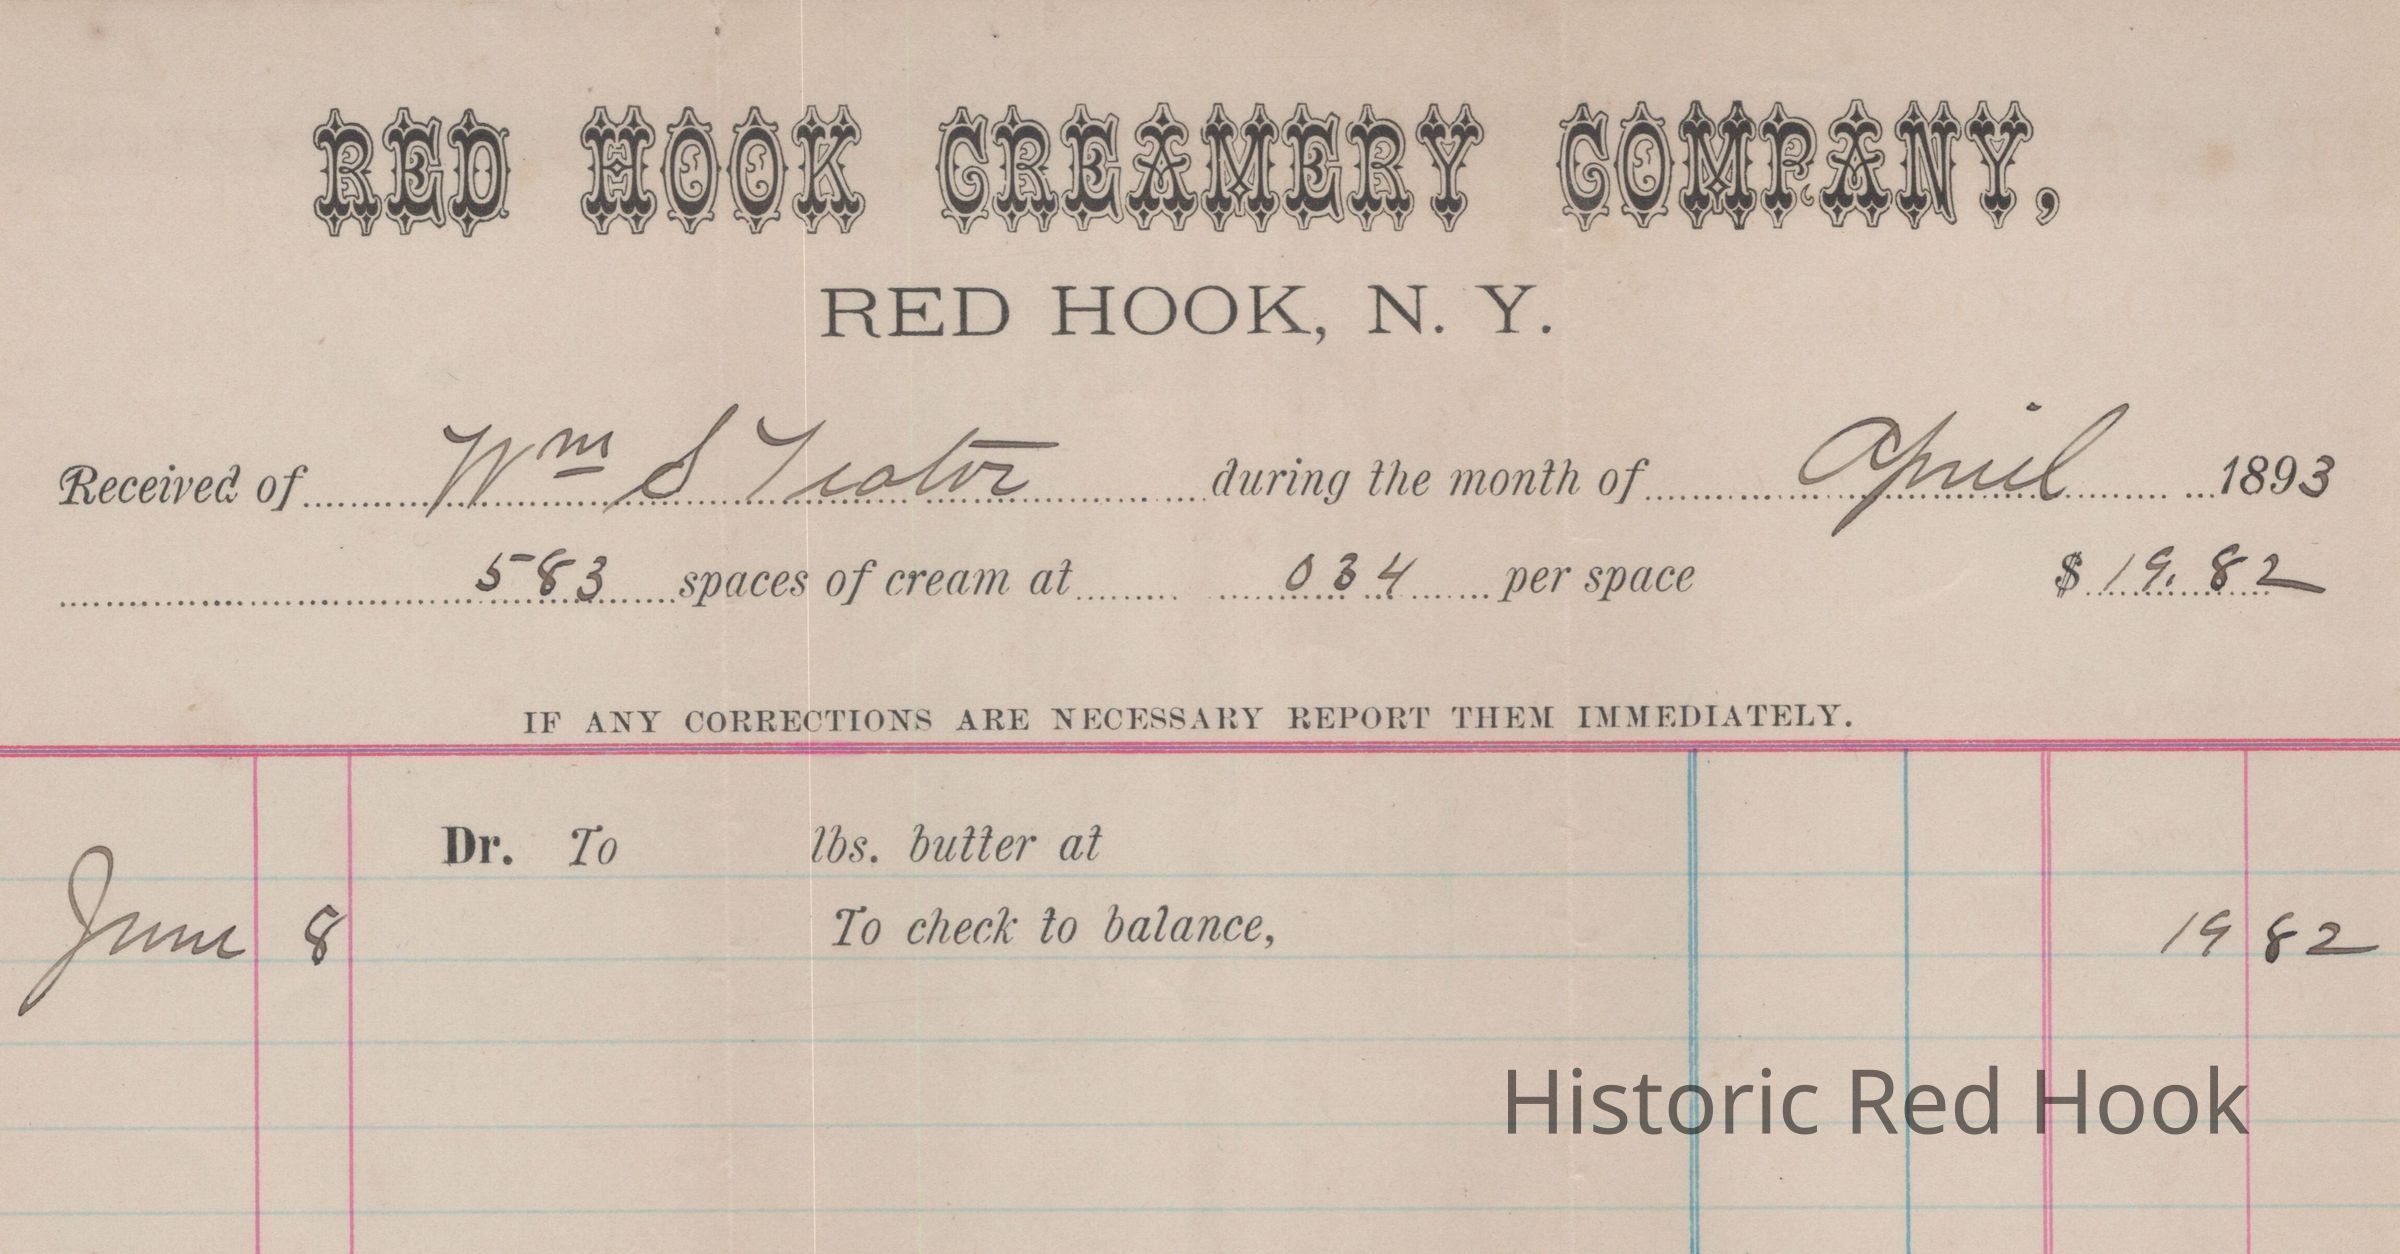 RED HOOK CREAMERY COMPANY,
RED HOOK, N. Y.
Received of Wm S Teator during the month of April 1893
583 spaces of cream at 034 per space $19.82
IF ANY CORRECTIONS ARE NECESSARY REPORT THEM IMMEDIATELY.
Dr. To lbs. butter at
June 8 To check to balance, 19 82
Historic Red Hook